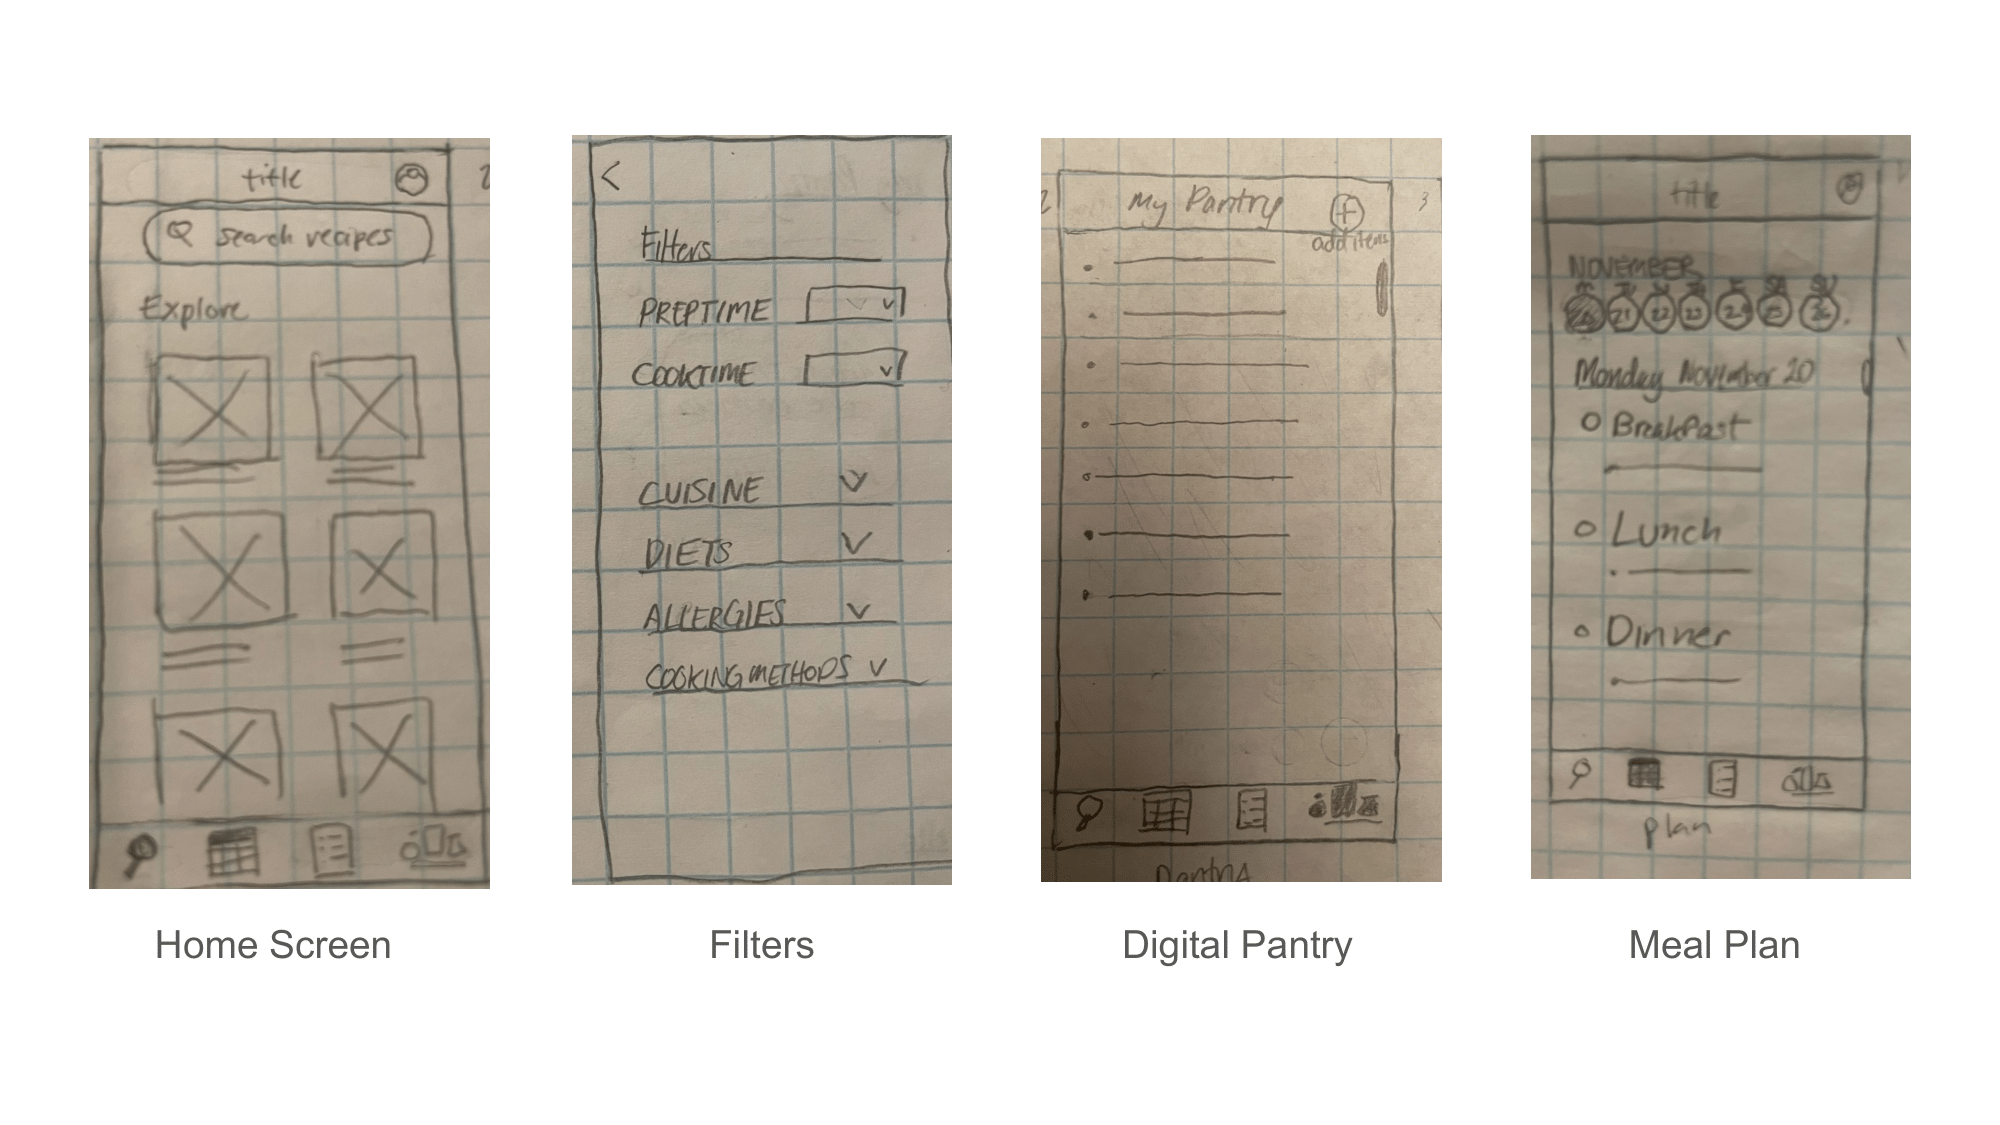 title
search recipes
Explore
Home Screen
<
Filters
PREPTIME
COOKTIME
CUISINE
DIETS
ALLERGIES
COOKING METHODS
Filters
2
My Pantry
3
add items
Pantry
Digital Pantry
title
NOVEMBER
21 22 23 24 25 26
Monday November 20
Breakfast
Lunch
Dinner
plan
Meal Plan